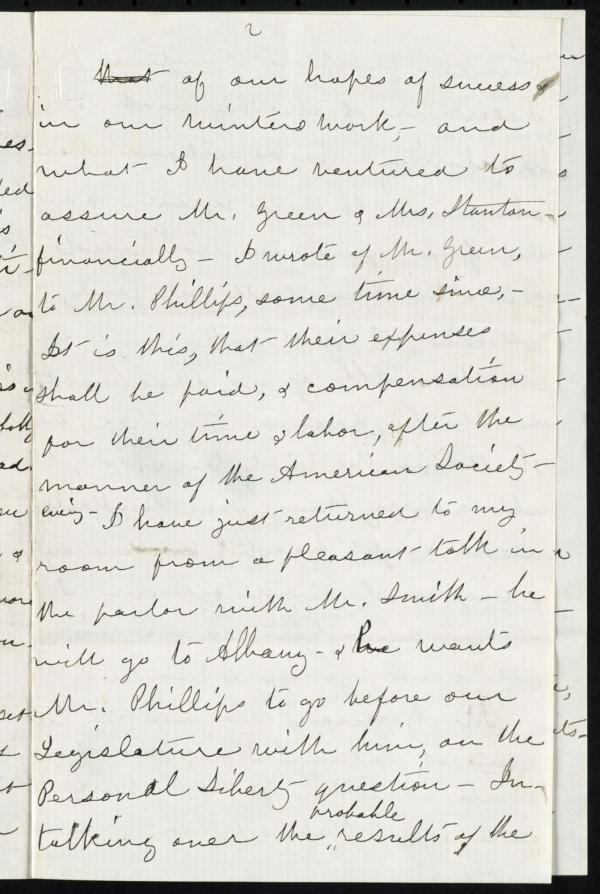 2
that of our hopes of success
in our winters work – and
what I have ventured to
assure Mr. Green & Mrs. Stanton –
financially – I wrote of Mr. Green,
to Mr. Phillips, some time since, –
It is this, that their expenses
shall be paid, & compensation
for their time & labor, after the
manner of the American Society –
eving – I have just returned to my
room from a pleasant talk in
the parlor with Mr. Smith – he
will go to Albany – & he wants
Mr. Phillips to go before our
Legislature with him, on the
Personal Liberty question – In
probable
talking over the results of the